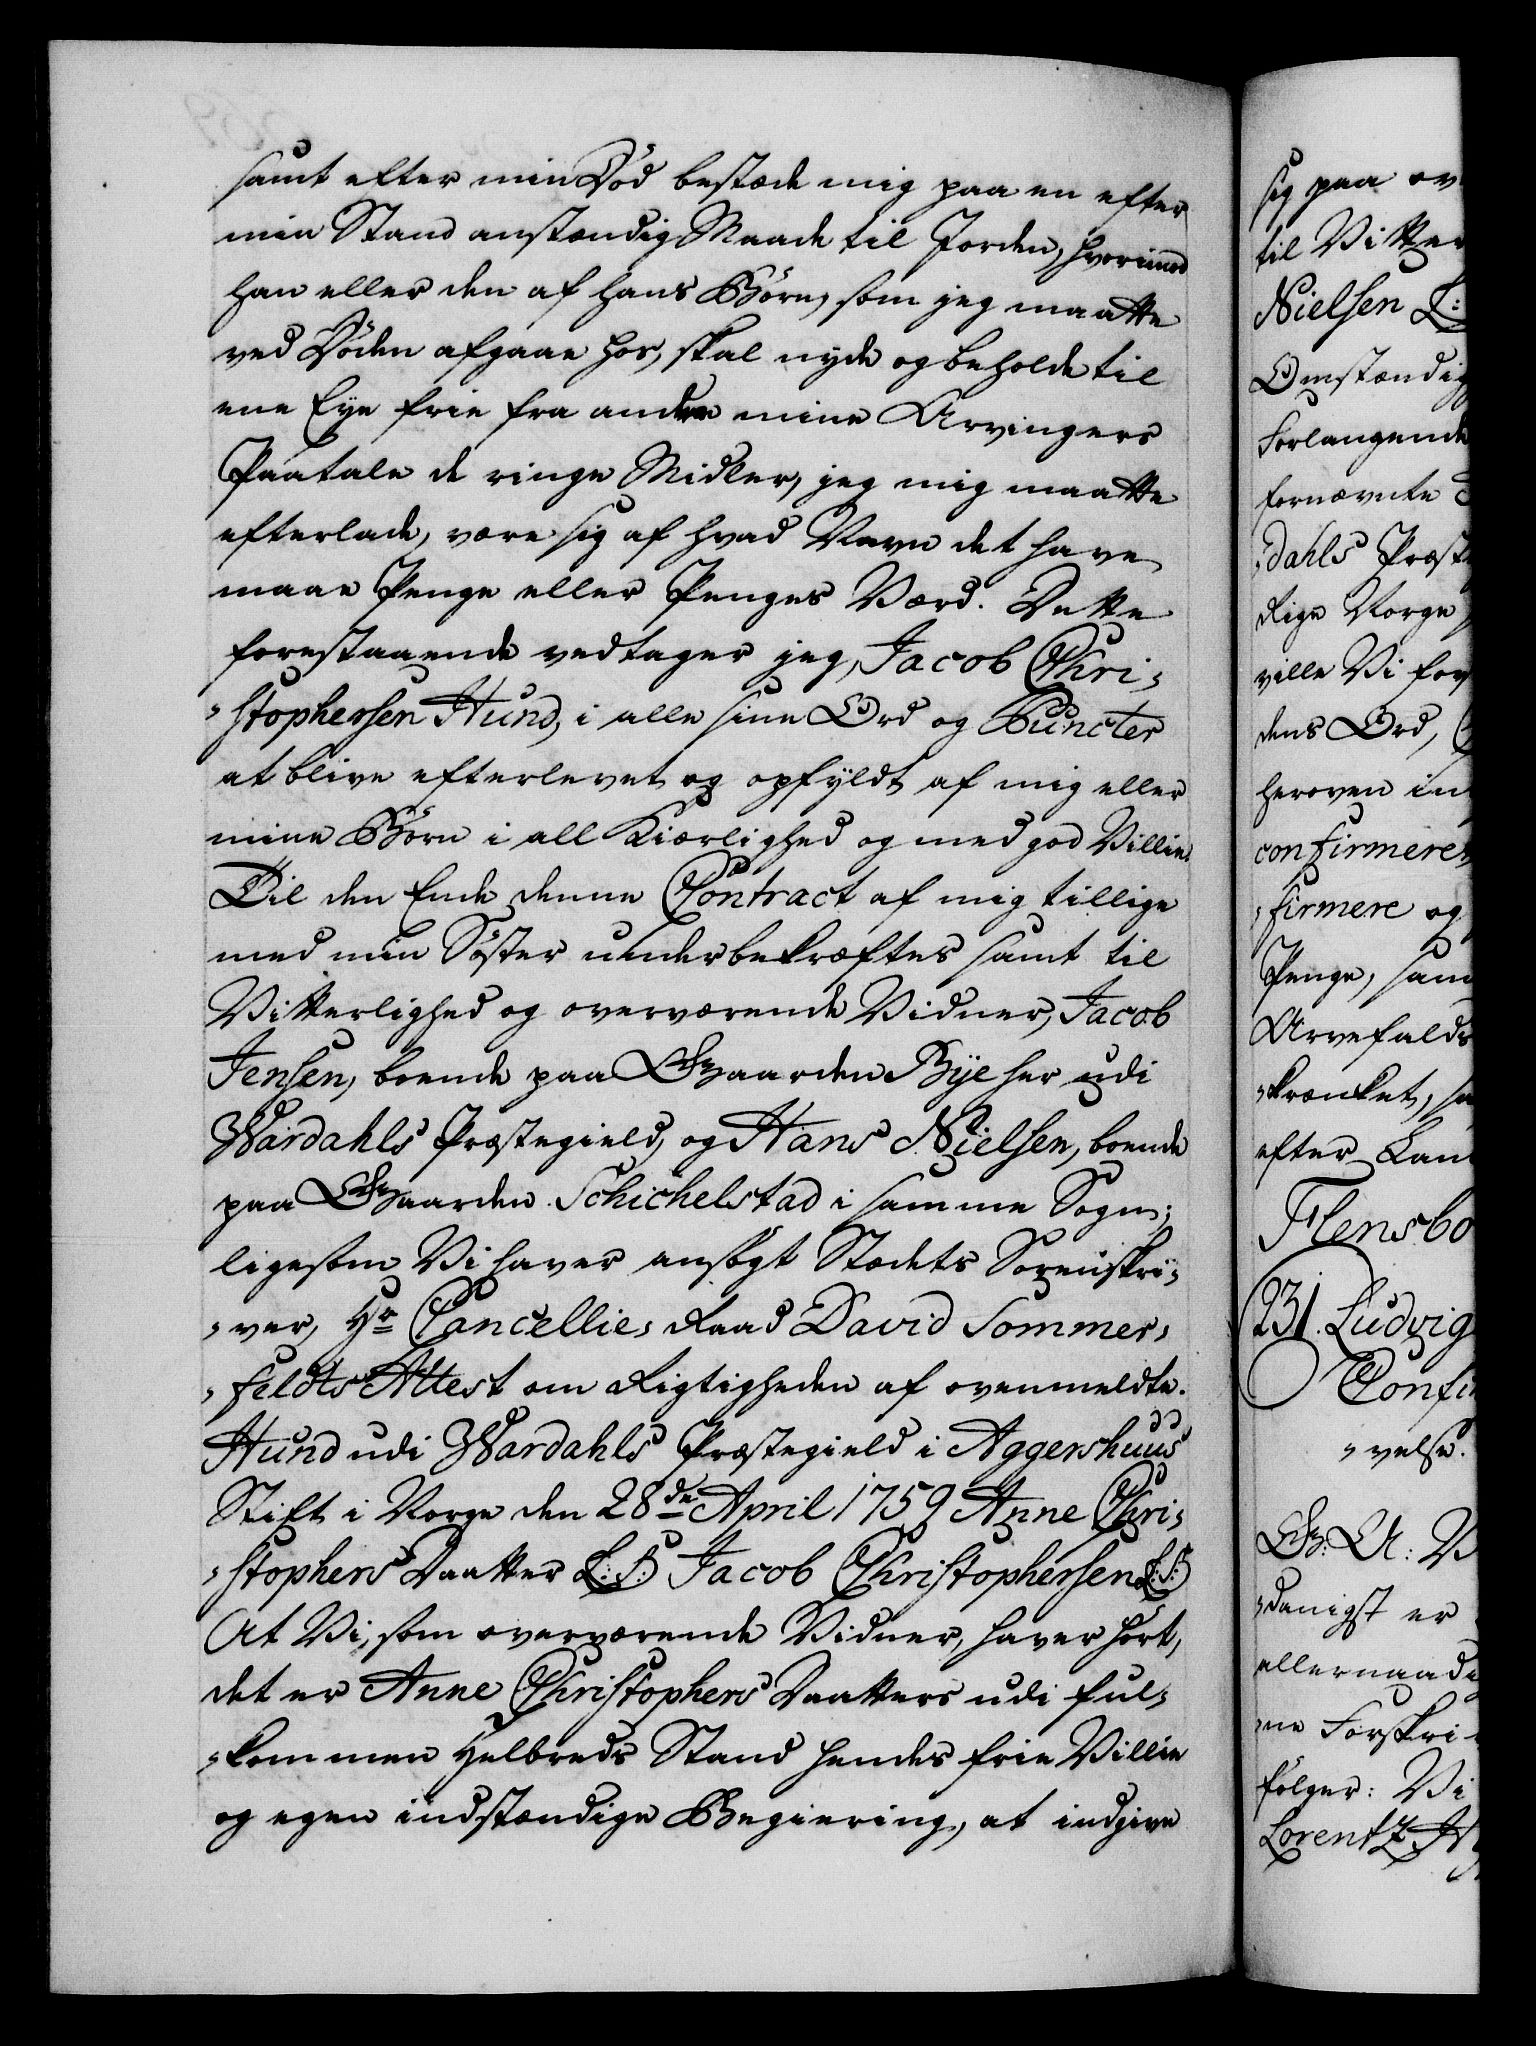 samt efter min Död bestæde mig paa en efter
min Stand anstændig Maade til Jorden, hvorimod
han eller den af hans Börn, som jeg maatte
ved Döden afgaae hos, skal nyde og beholde til
ene Eye frie fra andre mine Arvingers
Paatale de ringe Midler, jeg mig maatte
efterlade, være sig af hvad Navn det have
maae Penge eller Penges Værd. Dette
forestaaende vedtager jeg, Jacob Chri„
„stophersen Hund, i alle sine Ord og Puncter
at blive efterlevet og opfyldt af mig eller
mine Börn i all Kiærlighed og med god Villie.
Til den Ende denne Contract af mig tillige
med min Söster underbekræftes samt til
Vitterlighed og overværende Vidner, Jacob
Jensen, boende paa Gaarden Bye her udi
Wardahls Præstegield, og Hans Nielsen, boende
paa Gaarden Schichelstad i samme Sogn;
ligesom Vi haver ansögt Stædets Sorenskri„
„ver, Hr Cancellie„Raad David Sommer„
„feldts Attest om Rigtigheden af ovenmeldte.
Hund udi Wardahls Præstegield i Aggershuus
Stift i Norge den 28de April 1759 Anne Chri„
„stophers Daatter L: S: Jacob Christophersen L: S:
At Vi, som overværende Vidner, haver hört,
det er Anne Christophers Daatters udi ful„
„kommen Helbreds Stand hendes frie Villie
og egen indstændige Begiering, at indgive
sig paa ov
til Vitter
Nielsen L:
Omstændig
Forlangende
fornævnte
„dahls Præst
Rige Norge
ville Vi for
dens Ord,
heroven in
confirmere
„firmere og
Penge, sam
Arvefalds
„krænket, sa
efter Lan
Flensbo
231. Ludvig
Confi
„velse.
G: A: V
„danigst er
allernaadi
„ne Forskri
fölger: Vi
Lorentz